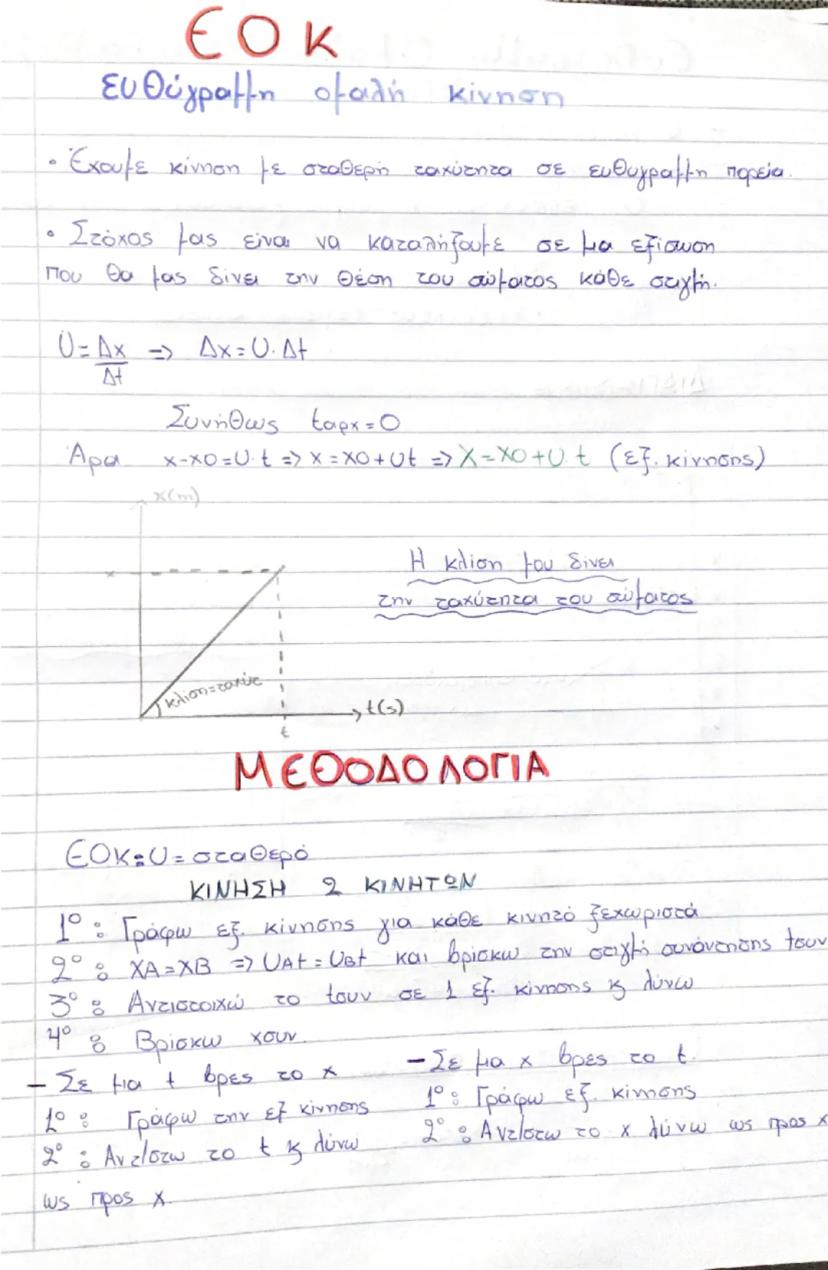 ΕΟΚ
ευθύγραμμη ομαλή κίνηση
• Έχουμε κίνηση με σταθερή ταχύτητα σε ευθυγραμμη πορεία.
• Στόχος μας είναι να καταλήξουμε σε μια εξίσωση
που θα μας δίνει την θέση του σώματος κάθε στιγμή.
U = Δx/Δt => Δx = U·Δt
Συνήθως tαρχ = 0
Άρα x-x0 = U·t => x = x0 + Ut => X = X0 + U·t (εξ. κίνησης)
x(m)
x
Η κλίση μου δίνει
την ταχύτητα του σώματος
κλίση = ταχύτ
t(s)
t
ΜΕΘΟΔΟΛΟΓΙΑ
ΕΟΚ: U = σταθερό
ΚΙΝΗΣΗ 2 ΚΙΝΗΤΩΝ
1° : Γράφω εξ. κίνησης για κάθε κινητό ξεχωριστά
2° : XA = XB => UAt = UBt και βρίσκω την στιγμή συνάντησης tσυν
3° : Αντιστοιχώ το tσυν σε 1 εξ. κίνησης ϗ λύνω
4° : Βρίσκω xσυν.
– Σε μια t βρες το x
1° : Γράφω την εξ κίνησης
2° : Αντ/στω το t ϗ λύνω
ως προς x.
– Σε μια x βρες το t.
1° : Γράφω εξ. κίνησης
2° : Αντ/στω το x λύνω ως προς x